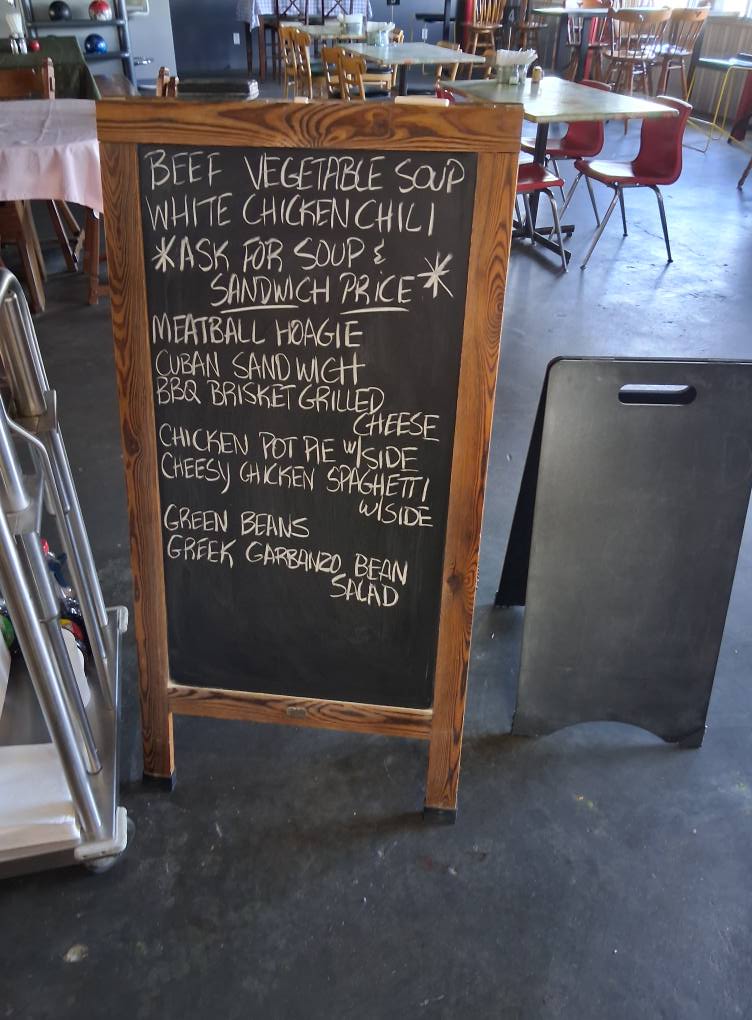 BEEF VEGETABLE SOUP
WHITE CHICKEN CHILI
*ASK FOR SOUP &
SANDWICH PRICE*
MEATBALL HOAGIE
CUBAN SANDWICH
BBQ BRISKET GRILLED
CHEESE
CHICKEN POT PIE W/SIDE
CHEESY CHICKEN SPAGHETTI
W/SIDE
GREEN BEANS
GREEK GARBANZO BEAN
SALAD